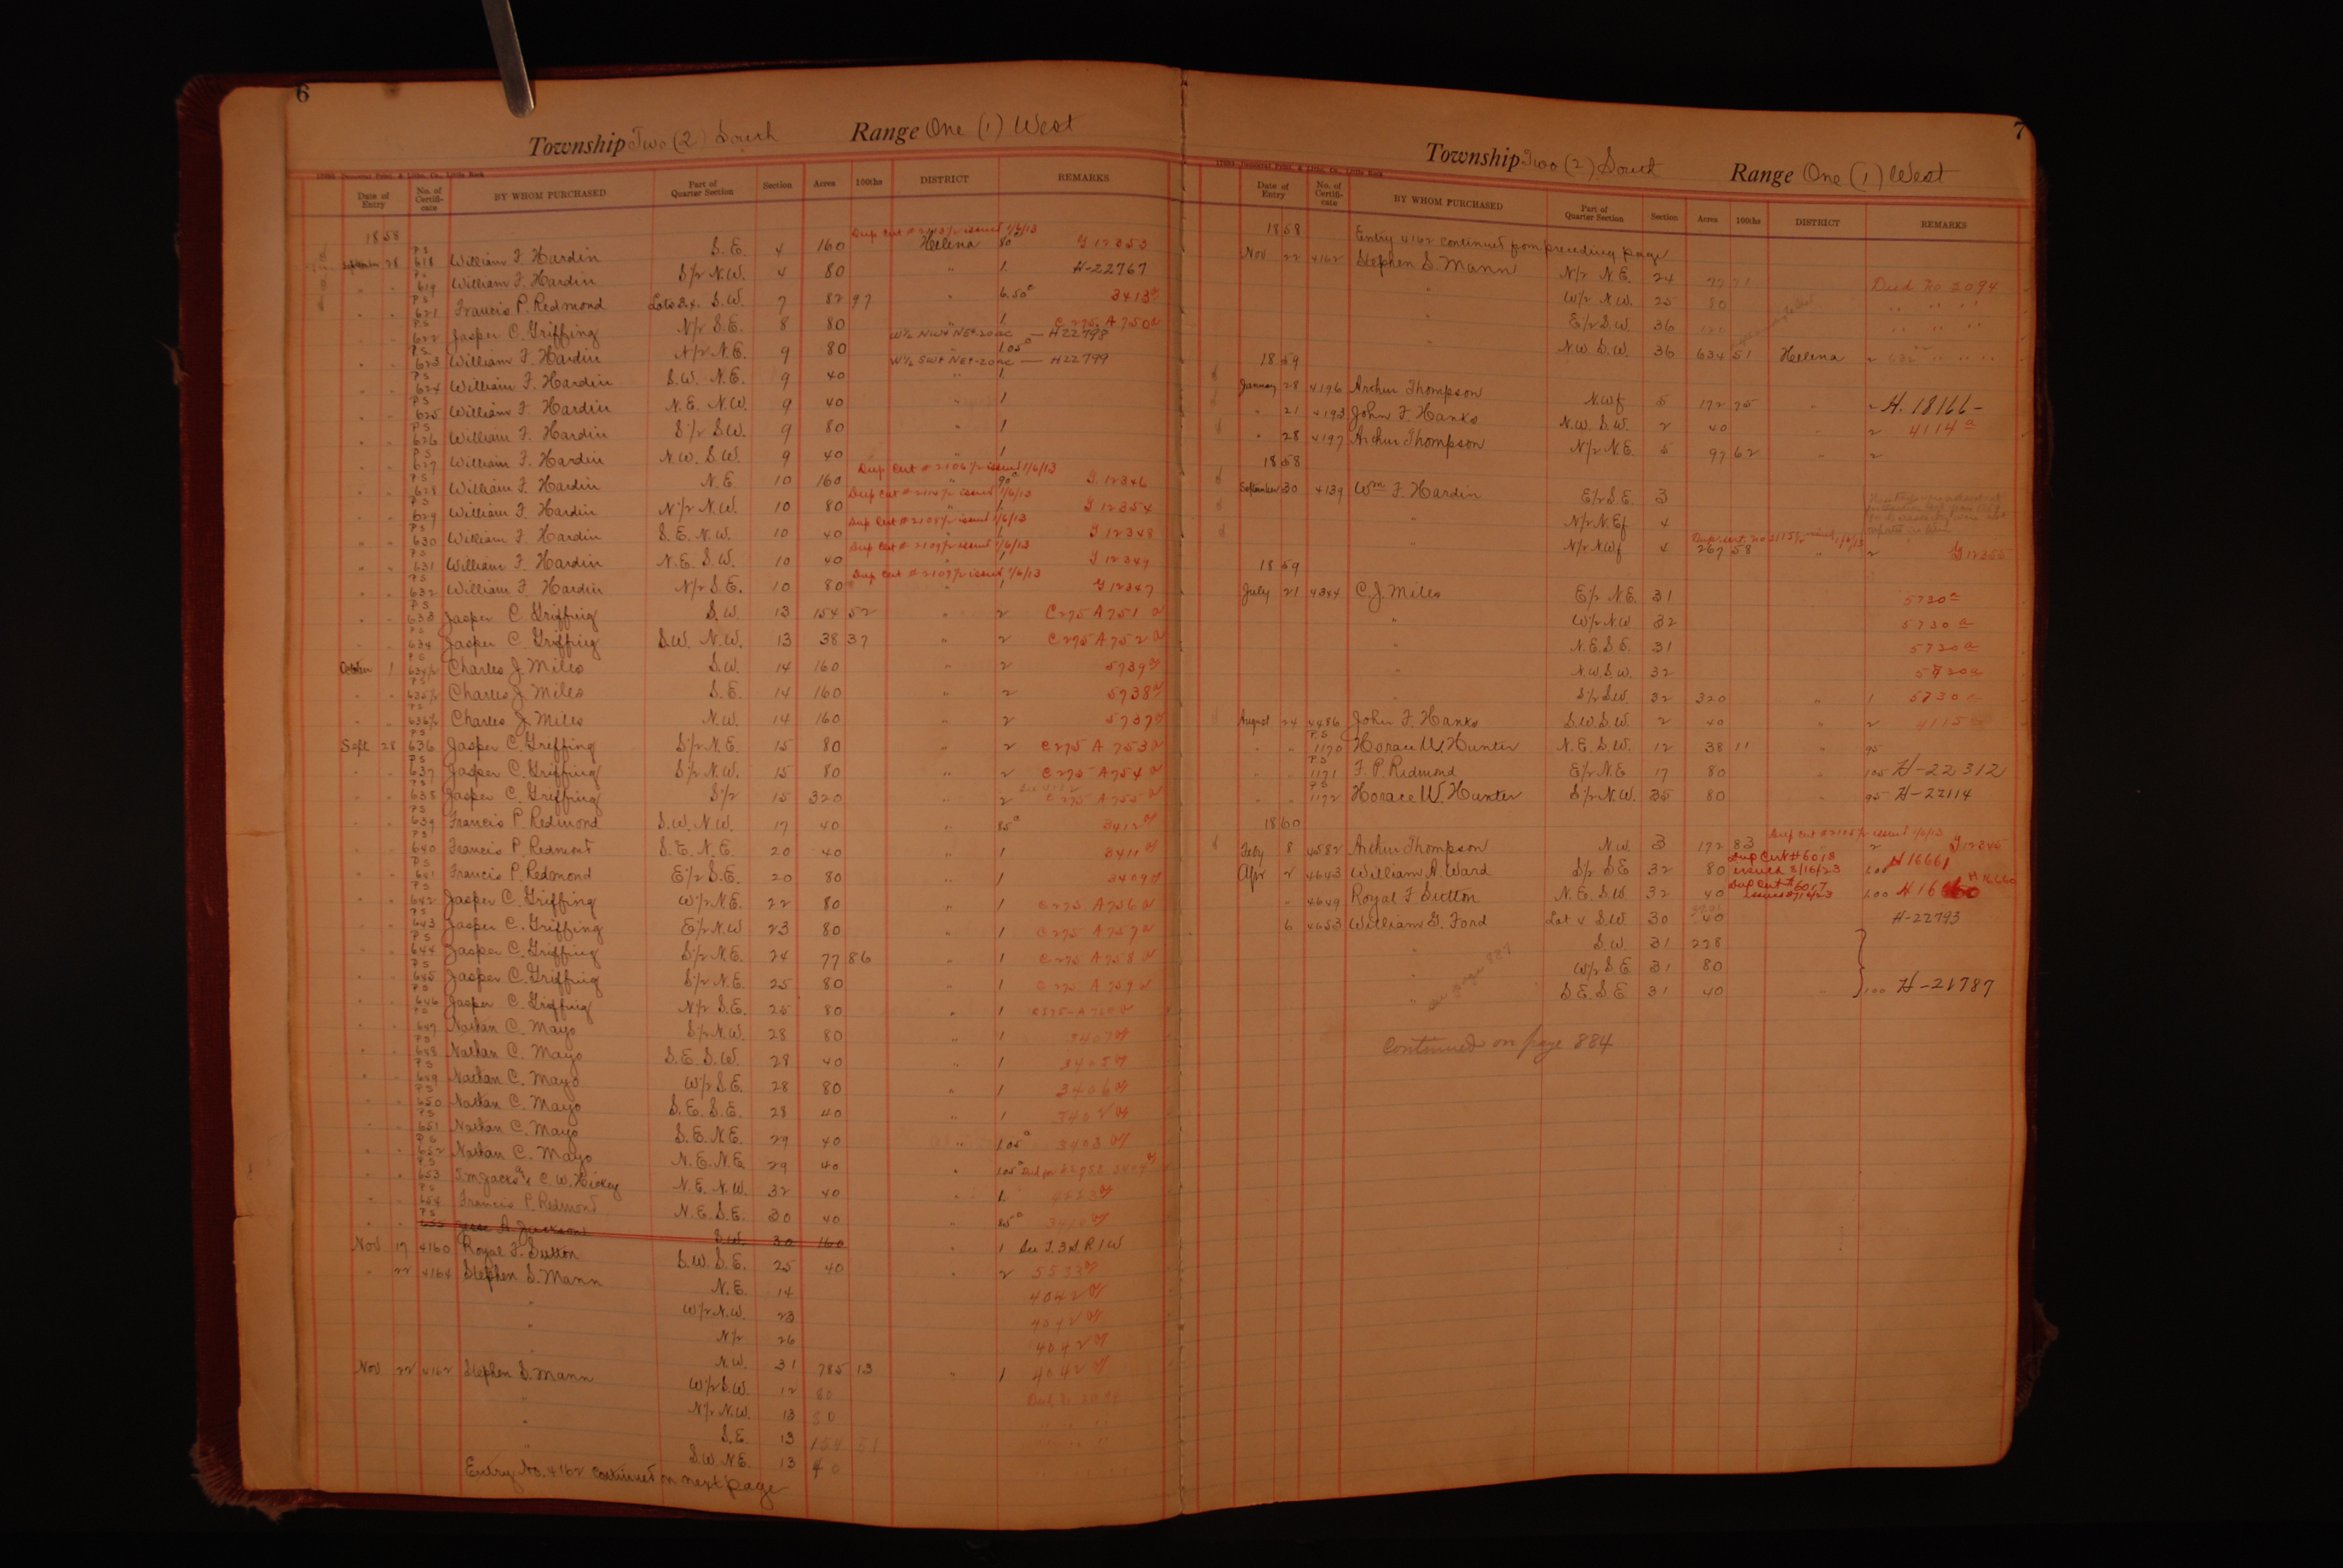 6
Township Two (2) South Range One (1) West
Date of Entry No. of Certificate BY WHOM PURCHASED Part of Quarter Section Section Acres 100ths DISTRICT REMARKS
1858
Dup Cert # issued 1/6/13
September 28 PS 618 William F. Hardin S.E. 4 160 Helena 80 G 12353
" " PS 619 William F. Hardin S1/2 N.W. 4 80 " 1 H-22767
" " PS 621 Francis P. Redmond Lots 3.4. S.W. 7 82 97 " 6.50 3413
" " PS 622 Jasper C. Griffing N1/2 S.E. 8 80 " 1 C275 A 750
W1/2 NW4 NE4-20ac — H22798
" " PS 623 William F. Hardin N1/2 N.E. 9 80 " 1.05
W1/2 SW4 NE4-20ac — H22799
" " PS 624 William F. Hardin S.W. N.E. 9 40 " 1
" " PS 625 William F. Hardin N.E. N.W. 9 40 " 1
" " PS 626 William F. Hardin S1/2 S.W. 9 80 " 1
" " PS 627 William F. Hardin N.W. S.W. 9 40 " 1
Dup Cert # 2106 1/2 issued 1/6/13
" " PS 628 William F. Hardin N.E. 10 160 " 90 G 12346
Dup Cert # 2114 1/2 issued 1/6/13
" " PS 629 William F. Hardin N1/2 N.W. 10 80 " 1 G 12354
Dup Cert # 2108 1/2 issued 1/6/13
" " PS 630 William F. Hardin S.E. N.W. 10 40 " 1 G 12348
Dup Cert # 2109 1/2 issued 1/6/13
" " PS 631 William F. Hardin N.E. S.W. 10 40 " 1 G 12349
Dup Cert # 2107 1/2 issued 1/6/13
" " PS 632 William F. Hardin N1/2 S.E. 10 80 " 1 G 12347
" " PS 633 Jasper C. Griffing S.W. 13 154 52 " 2 C275 A 751
" " PS 634 Jasper C. Griffing S.W. N.W. 13 38 37 " 2 C275 A 752
October 1 PS 634 1/2 Charles J. Miles S.W. 14 160 " 2 5739
" " PS 635 1/2 Charles J. Miles S.E. 14 160 " 2 5738
" " PS 636 1/2 Charles J. Miles N.W. 14 160 " 2 5737
Sept 28 PS 636 Jasper C. Griffing S1/2 N.E. 15 80 " 2 C275 A 753
" " PS 637 Jasper C. Griffing S1/2 N.W. 15 80 " 2 C275 A 754
" " PS 638 Jasper C. Griffing S1/2 15 320 " 2 C275 A 755
" " PS 639 Francis P. Redmond S.W. N.W. 17 40 " 85 3412
" " PS 640 Francis P. Redmond S.E. N.E. 20 40 " 1 3411
" " PS 641 Francis P. Redmond E1/2 S.E. 20 80 " 1 3409
" " PS 642 Jasper C. Griffing W1/2 N.E. 22 80 " 1 C275 A 756
" " PS 643 Jasper C. Griffing E1/2 N.W 23 80 " 1 C275 A 757
" " PS 644 Jasper C. Griffing S1/2 N.E. 24 77 86 " 1 C275 A 758
" " PS 645 Jasper C. Griffing S1/2 N.E. 25 80 " 1 C275 A 759
" " PS 646 Jasper C. Griffing N1/2 S.E. 25 80 " 1 C275-A 760
" " PS 647 Nathan C. Mayo S1/2 N.W. 28 80 " 1 3407
" " PS 648 Nathan C. Mayo S.E. S.W. 28 40 " 1 3405
" " PS 649 Nathan C. Mayo W1/2 S.E. 28 80 " 1 3406
" " PS 650 Nathan C. Mayo S.E. S.E. 28 40 " 1
" " PS 651 Nathan C. Mayo S.E. N.E. 29 40 " 1.05 3403
" " PS 652 Nathan C. Mayo N.E. N.E. 29 40 " 1.05 3404
" " PS 653 C. W. Hickey N.E. N.W. 32 40 " 1
" " PS 654 Francis P. Redmond N.E. S.E. 30 40 " 85 3410
" " PS 655 Jesse A. Jackson S.W. 30 160 " 1 See T. 3 S. R 1 W
Nov 17 4160 Royal F. Sutton S.W. S.E. 25 40 " 2 5533
" 22 4164 Stephen S. Mann N.E. 14 4042
" W1/2 N.W. 23 4042
" N1/2 26 4042
N.W. 31 785 13 " 1 4042
Nov 22 4162 Stephen S. Mann W1/2 S.W. 12 80
N1/2 N.W. 13 80
" S.E. 13 154 51
" S.W. N.E. 13 40
Entry No. 4162 continued on next page
7
Township Two (2) South Range One (1) West
Date of Entry No. of Certificate BY WHOM PURCHASED Part of Quarter Section Section Acres 100ths DISTRICT REMARKS
1858 Entry 4162 continued from preceding page
Nov 22 4162 Stephen S. Mann N1/2 N.E. 24 77 71 Deed No 2094
" W1/2 N.W. 25 80 " " "
" E1/2 S.W. 36 120 " " "
" N.W. S.W. 36 634 51 Helena " " "
1859
January 28 4196 Archer Thompson N.Wf 5 172 75 " H. 18166-
" 21 4193 John F. Hanks N.W. S.W. 2 40 " 2 4114
" 28 4197 Archer Thompson N1/2 N.E. 5 97 62 " 2
1858
September 30 4139 Wm F. Hardin E1/2 S.E. 3
" N1/2 N.Ef 4
Dup. cert. no 2115 1/2 issued 1/6/13
" N1/2 N.Wf 4 267 58 " 2 G 12355
1859
July 21 4344 C. J. Miles E1/2 N.E. 31 5730
" W1/2 N.W 32 5730
" N.E. S.E. 31 5730
" N.W. S.W. 32 5730
" S1/2 S.W. 32 320 " 1 5730
August 24 4486 John F. Hanks S.W. S.W. 2 40 " 2 4115
" " PS 1170 Horace W. Hunter N.E. S.W. 12 38 11 " 95
PS 1171 F. P. Redmond E1/2 N.E 17 80 " 105 H-22312
" " PS 1172 Horace W. Hunter S1/2 N.W. 35 80 " 95 H-22114
1860
Dup cert # 2105 1/2 issued 1/6/13
Feby 8 4582 Archer Thompson N.W. 3 172 83 " 2 G 12345
Apr 2 4643 William A. Ward S1/2 S.E 32 80 Dup Cert # 6018 issued 3/16/23 1.00 H 16661
" 4649 Royal F. Sutton N.E. S.W 32 40 Dup Cert # 6017 issued 3/16/23 1.00 H 16660 H 16660
6 4653 William G. Ford Lot 4 S.W 30 40 H-22793
" S.W. 31 228
" W1/2 S.E 31 80
" S.E. S.E 31 40 " 1.00 H-21787
see page 884
Continued on page 884